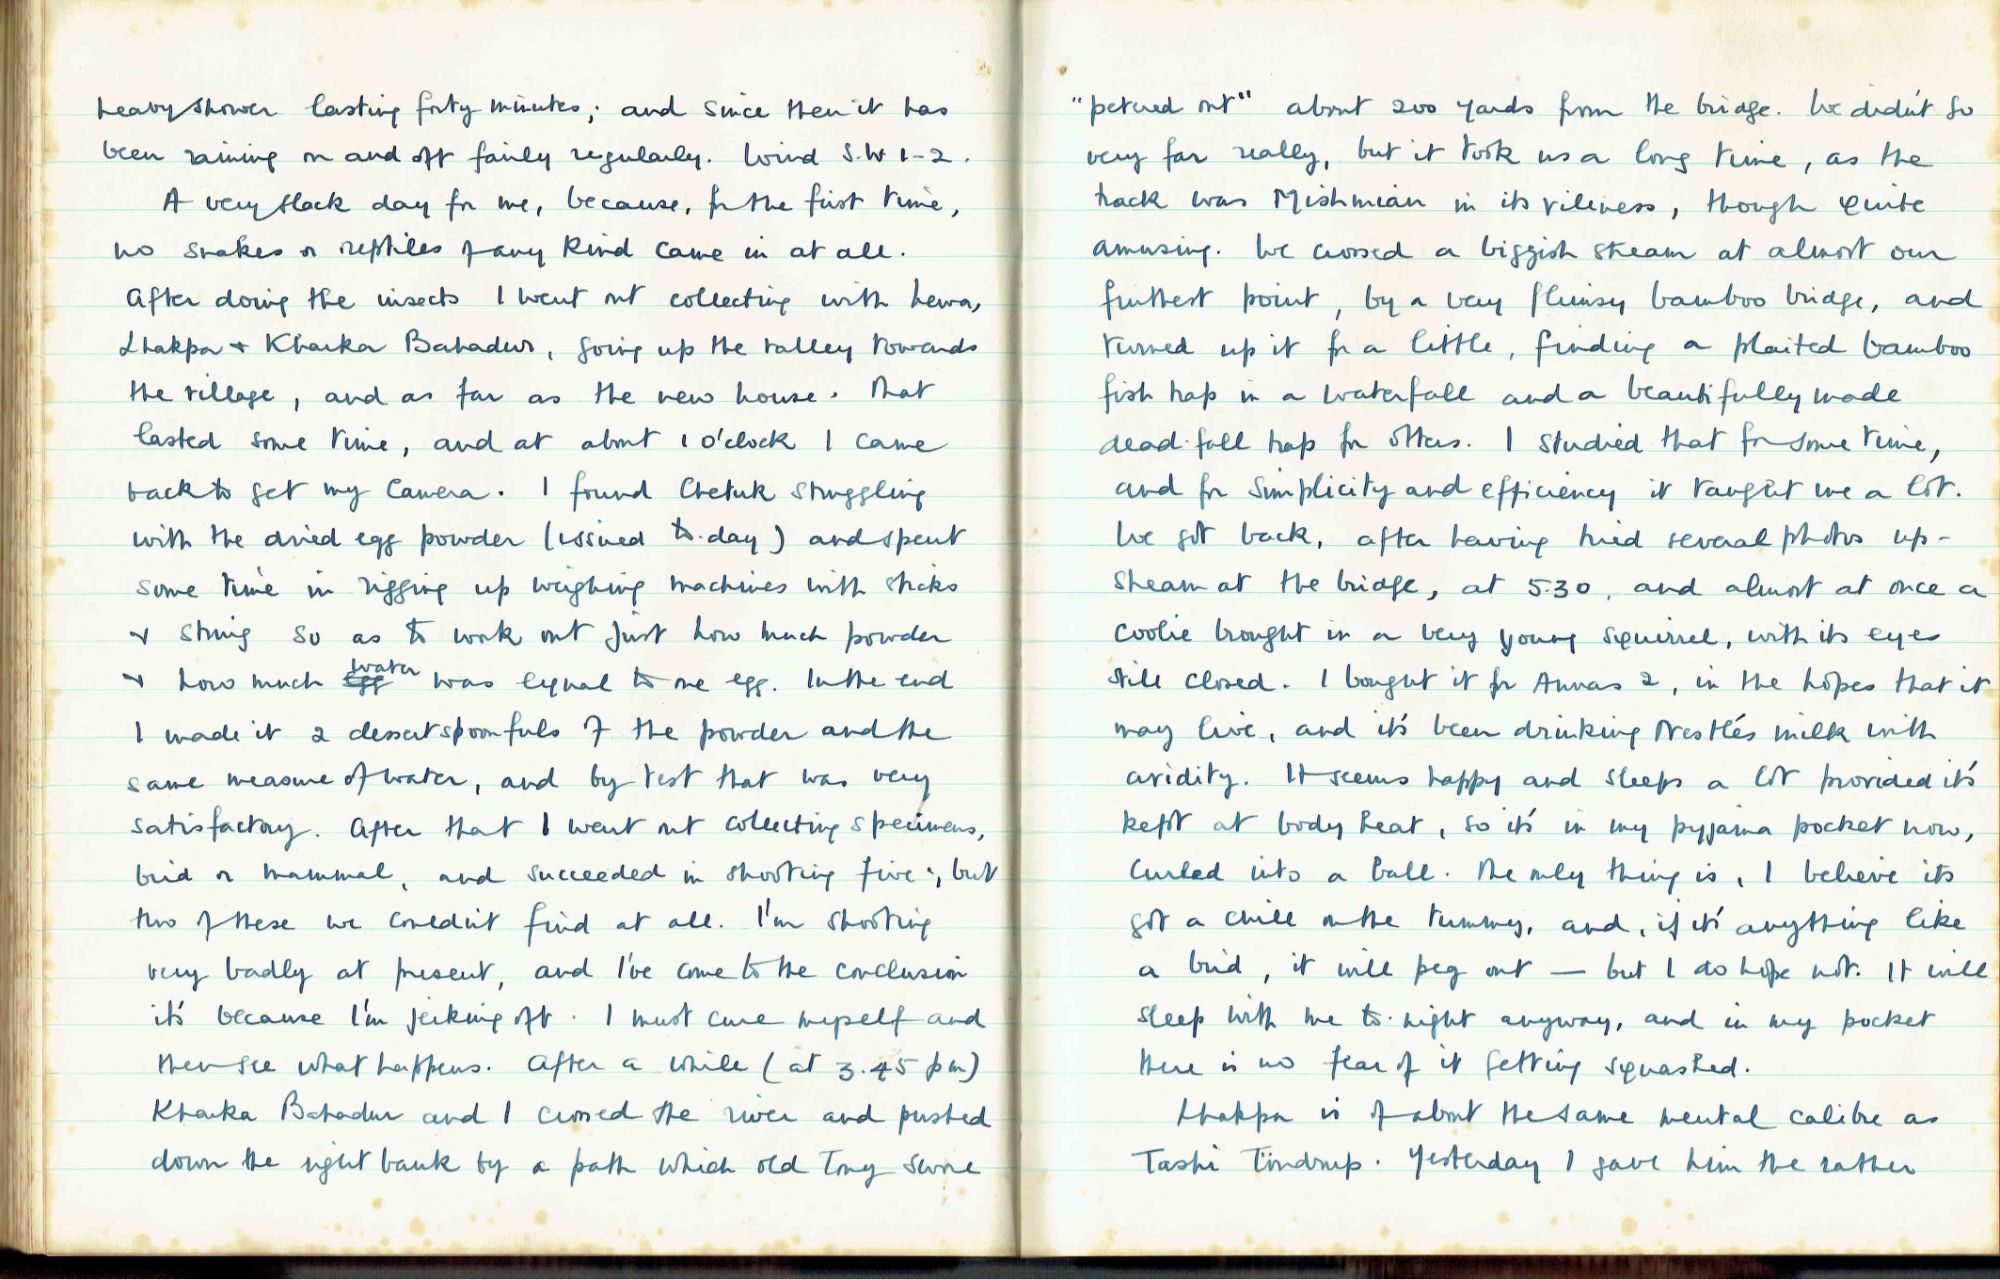 heavy shower lasting forty minutes; and since then it has
been raining on and off fairly regularly. Wind S.W 1-2.
A very slack day for me, because, for the first time,
no snakes or reptiles of any kind came in at all.
After doing the insects I went out collecting with Lewa,
Lhakpa & Kharka Bahadur, going up the valley towards
the village, and as far as the new house. That
lasted some time, and at about 1 o'clock I came
back to get my camera. I found Chetuk struggling
with the dried egg powder (issued to-day) and spent
some time in rigging up weighing machines with sticks
& string so as to work out just how much powder
& how much egg water was equal to one egg. In the end
I made it 2 dessertspoonfuls of the powder and the
same measure of water, and by test that was very
satisfactory. After that I went out collecting specimens,
bird or mammal, and succeeded in shooting five; but
two of these we couldn't find at all. I'm shooting
very badly at present, and I've come to the conclusion
it's because I'm jerking off. I must cure myself and
then see what happens. After a while (at 3.45 pm)
Kharka Bahadur and I crossed the river and pushed
down the right bank by a path which old Tony swore
"petered out" about 200 yards from the bridge. We didn't go
very far really, but it took us a long time, as the
track was Mishmian in its vileness, though quite
amusing. We crossed a biggish stream at almost our
furthest point, by a very flimsy bamboo bridge, and
turned up it for a little, finding a plaited bamboo
fish trap in a waterfall and a beautifully made
dead-fall trap for otters. I studied that for some time,
and for simplicity and efficiency it taught me a lot.
We got back, after having tried several photos up-
stream at the bridge, at 5.30, and almost at once a
coolie brought in a very young squirrel, with its eyes
still closed. I bought it for Annas 2, in the hopes that it
may live, and it's been drinking Nestlé's milk with
avidity. It seems happy and sleeps a lot provided it's
kept at body heat, so it's in my pyjama pocket now,
curled into a ball. The only thing is, I believe its
got a chill on the tummy, and, if it's anything like
a bird, it will peg out — but I do hope not. It will
sleep with me to-night anyway, and in my pocket
there is no fear of it getting squashed.
Lhakpa is of about the same mental calibre as
Tashi Töndrup. Yesterday I gave him the rather